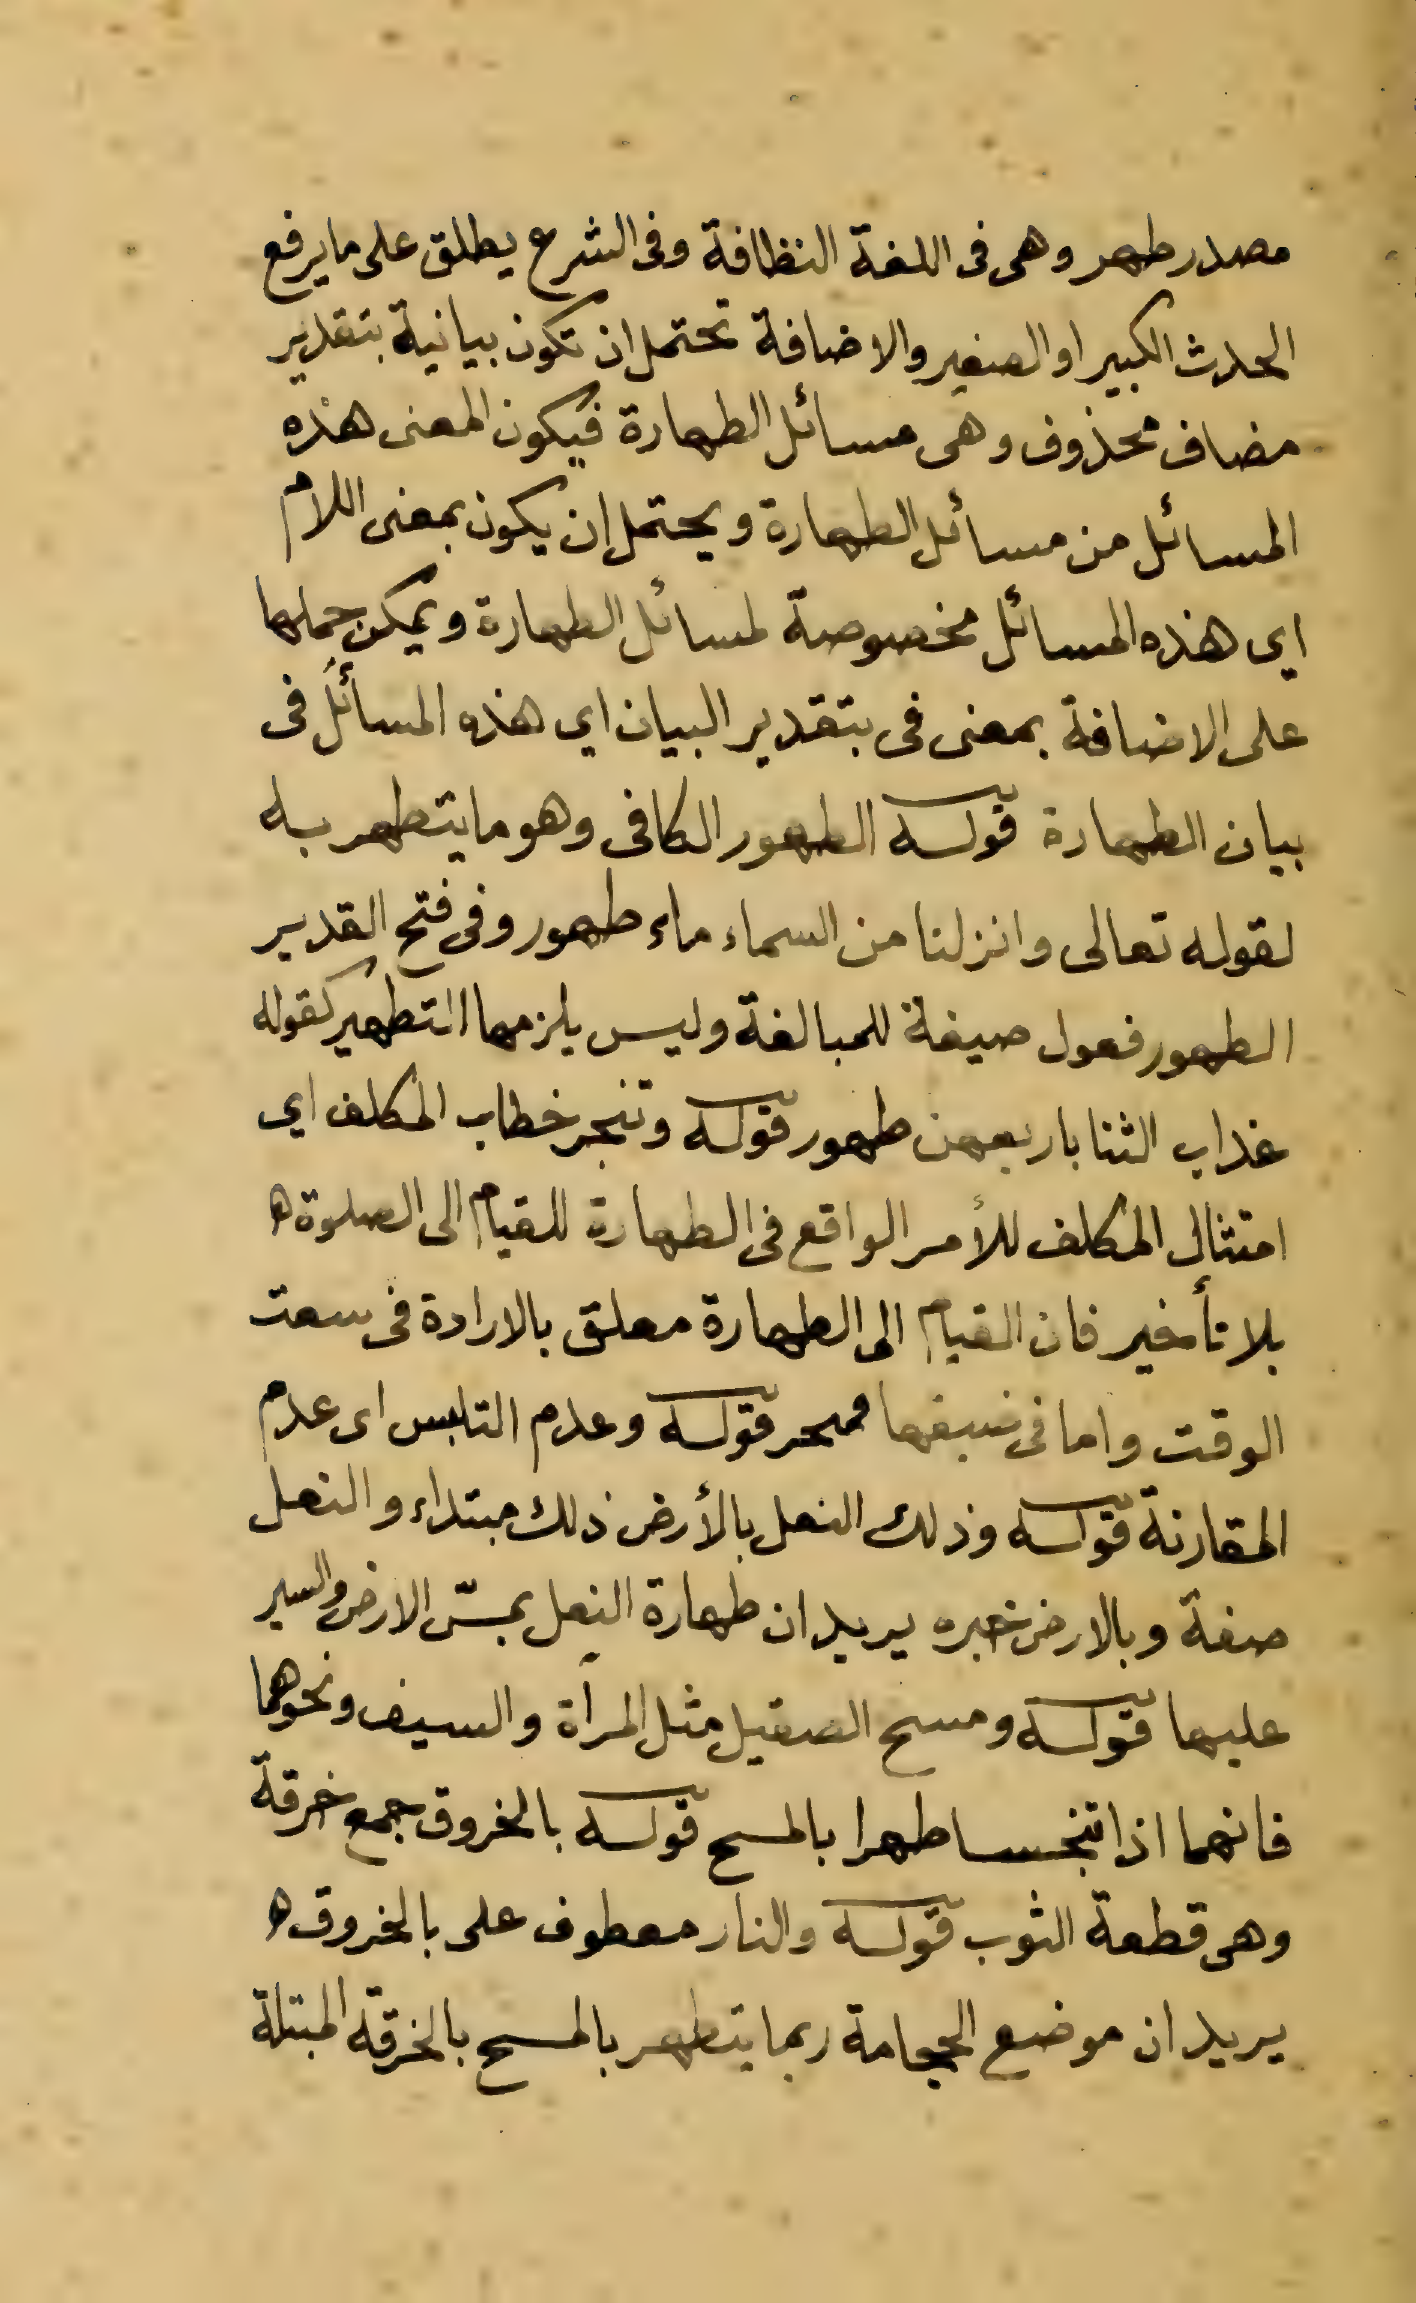 مصدر طهر وهى فى اللغة النظافة وفى الشرع يطلق على ما يرفع
الحدث الكبير او الصغير والاضافة تحتمل ان تكون بيانية بتقدير
مضاف محذوف وهى مسائل الطهارة فيكون المعنى هذه
المسائل من مسائل الطهارة ويحتمل ان يكون بمعنى اللام
اى هذه المسائل مخصوصة لمسائل الطهارة ويمكن حملها
على الاضافة بمعنى فى بتقدير البيان اى هذه المسائل فى
بيان الطهارة قوله الطهور الكافى وهو ما يتطهر به
لقوله تعالى وانزلنا من السماء ماء طهور وفى فتح القدير
الطهور فعول صيغة للمبالغة وليس يلزمها التطهير كقوله
عذاب الثنايا ريقهن طهور قوله وتنجز خطاب المكلف اى
امتثال المكلف للأمر الواقع فى الطهارة للقيام الى الصلوة ه
بلا تأخير فان القيام الى الطهارة معلق بالارادة فى سعت
الوقت واما فى ضيقها قوله وعدم التلبس اى عدم
المقارنة قوله وذلك النعل بالأرض ذلك مبتداء والنعل
صفة وبالارض خبره يريد ان طهارة النعل بمسّ الارض والسير
عليها قوله ومسح الصقيل مثل المرأة والسيف ونحوهما
فانهما اذا تنجسا طهرا بالمسح قوله بالخروق جمع خرقة
وهى قطعة الثوب قوله والنار معطوف على بالخروق ه
يريد ان موضع الحجامة ربما يتطهر بالمسح بالخرقة المبتلة